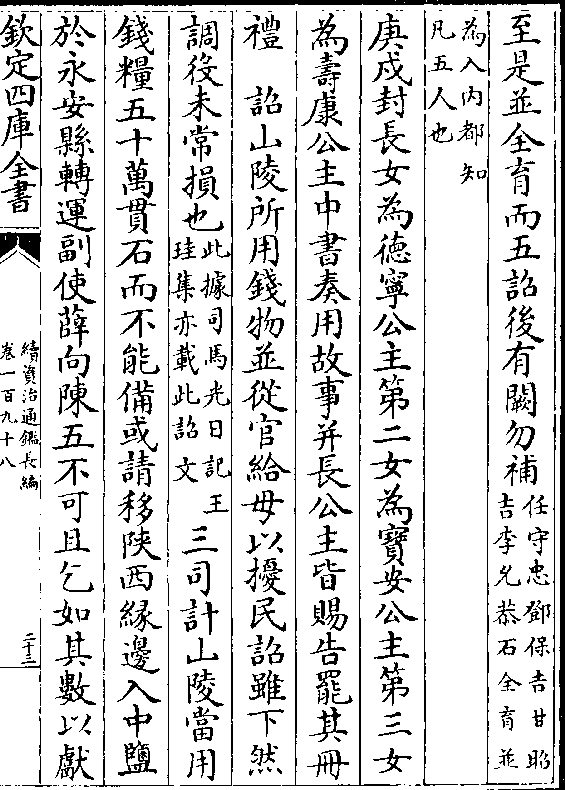 至是並全育而五詔後有闕勿補任守忠鄧保吉甘昭吉李允恭石全育並
為入內都知凡五人也
庚戌封長女為德寧公主第二女為寶安公主第三女
為壽康公主中書奏用故事并長公主皆賜告罷其冊
禮　詔山陵所用錢物並從官給毋以擾民詔雖下然
調役未常損也此據司馬光日記王珪集亦載此詔文三司計山陵當用
錢糧五十萬貫石而不能備或請移陜西緣邊入中鹽
於永安縣轉運副使薛向陳五不可且乞如其數以獻
欽定四庫全書
續資治通鑑長編
卷一百九十八
二十三